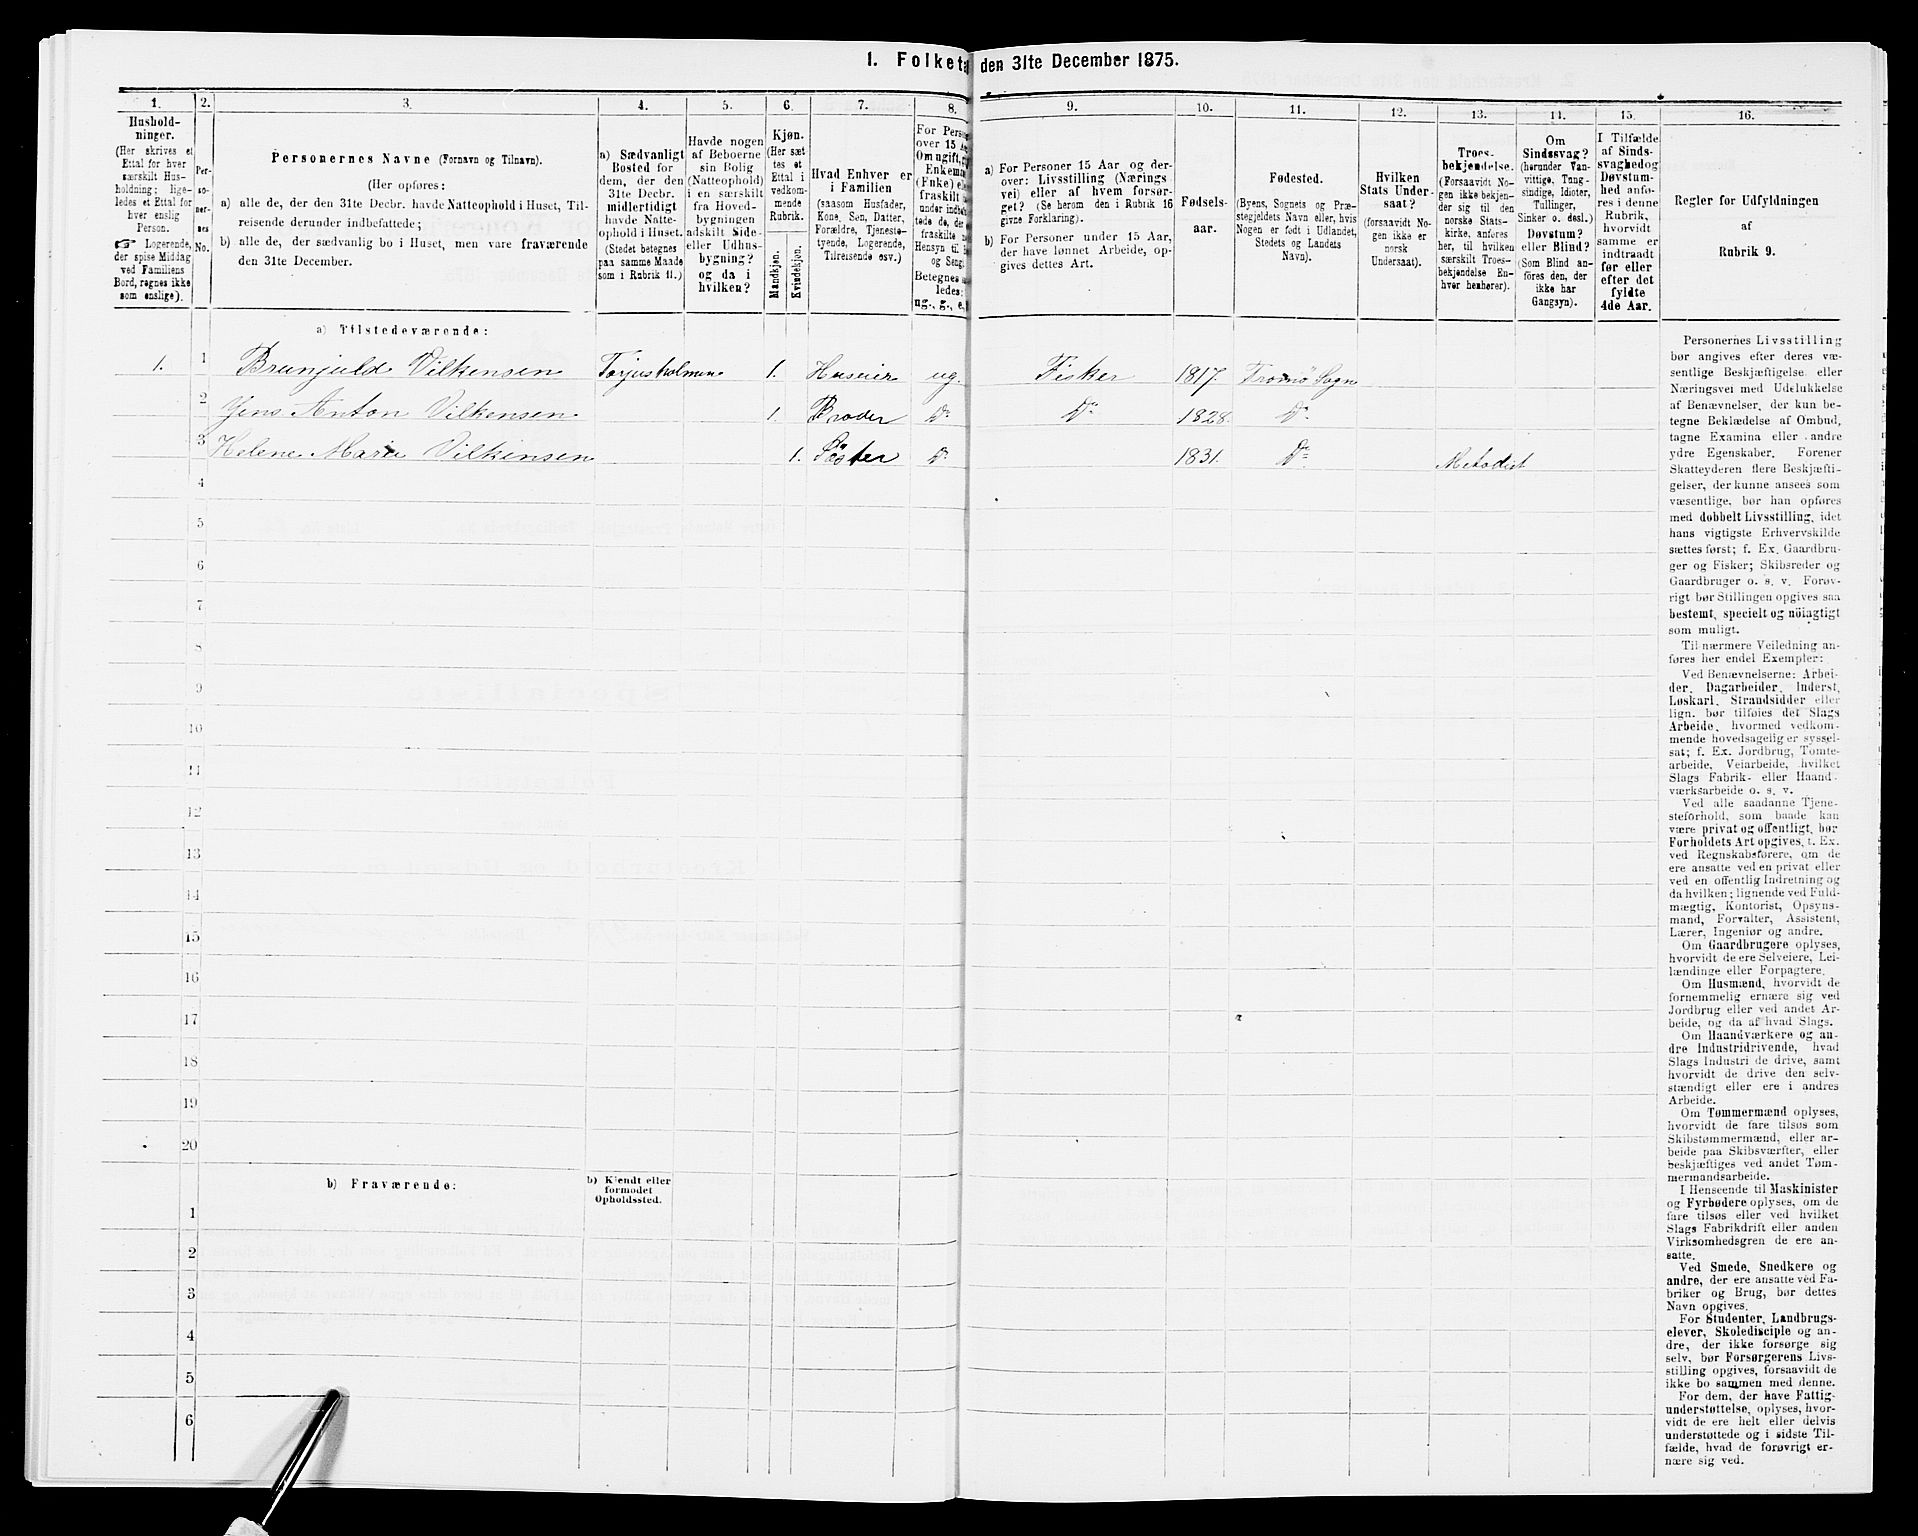 1. Folketæ
den 31te December 1875.
1.
2.
3.
4.
5.
6.
7.
8.
9.
10.
11.
12.
13.
14.
15.
16.
Hushold-
ninger.
(Her skrives et
Ettal for hver
særskilt Hus-
holdning; lige-
ledes et Ettal for
hver enslig
Person.
☞ Logerende,
der spise Middag
ved Familiens
Bord, regnes ikke
som enslige).
Per-
so-
ner-
nes
No.
Personernes Navne (Fornavn og Tilnavn).
(Her opføres:
a) alle de, der den 31te Decbr. havde Natteophold i Huset, Til-
reisende derunder indbefattede;
b) alle de, der sædvanlig bo i Huset, men vare fraværende
den 31te December.
a) Sædvanligt
Bosted for
dem, der den
31te Decbr.
midlertidigt
havde Natte-
ophold i Huset.
(Stedet betegnes
paa samme Maade
som i Rubrik 11.)
Havde nogen
af Beboerne
sin Bolig
(Natteophold)
i en særskilt
fra Hoved-
bygningen
adskilt Side-
eller Udhus-
bygning?
og da i
hvilken?
Kjøn.
(Her sæt-
tes et
Ettal i
vedkom-
mende
Rubrik.
Mandkjøn.
Kvindekjøn.
Hvad Enhver er
i Familien
(saasom Husfader,
Kone, Søn, Datter,
Forældre, Tjeneste-
tyende, Logerende,
Tilreisende osv.)
For Perso
over 15 A
Om ugift,
Enkema
(Enke) el
fraskilt
under indbe
tede de, der
fraskilte
Hensyn til
og Seng
Betegnes
ledes:
ug., g., e.,
a) For Personer 15 Aar og der-
over: Livsstilling (Nærings-
vei) eller af hvem forsør-
get? (Se herom den i Rubrik 16
givne Forklaring).
b) For Personer under 15 Aar,
der have lønnet Arbeide, op-
gives dettes Art.
Fødsels-
aar.
Fødested.
(Byens, Sognets og Præ-
stegjeldets Navn eller, hvis
Nogen er født i Udlandet,
Stedets og Landets
Navn).
Hvilken
Stats Under-
saat?
(forsaavidt No-
gen ikke er
norsk
Undersaat).
Troes-
bekjendelse.
(Forsaavidt No-
gen ikke bekjen-
der sig til den
norske Stats-
kirke, anføres
her, til hvilken
særskilt Troes-
bekjendelse En-
hver henhører).
Om
Sindssvag?
(herunder Van-
vittige, Tung-
sindige, Idioter,
Tullinger,
Sinker o. desl.)
Døvstum?
eller Blind?
(Som Blind an-
føres den, der
ikke har
Gangsyn).
I Tilfælde
af Sinds-
svaghed og
Døvstum-
hed anfø-
res i denne
Rubrik,
hvorvidt
samme er
indtraadt
før eller
efter det
fyldte
4de Aar.
Regler for Udfyldningen
af
Rubrik 9.
a) Tilstedeværende:
1. 1 Brunjuld Vilkensen Torjusholmen 1. Huseier ug. Fisker 1817. Tromø Sogn
2 Jens Anton Vilkensen 1. Broder Do Do 1828. Do
3 Helene Marie Vilkinsen 1. Söster Do 1831. Do Metodist
4
5
6
7
8
9
10
11
12
13
14
15
16
17
18
19
20
b) Fraværende:
b) Kjendt eller
formodet
Opholdssted.
1
2
3
4
5
6
Personernes Livsstilling
bør angives efter deres væ-
sentlige Beskjæftigelse eller
Næringsvei med Udelukkelse
af Benævnelser, der kun be-
tegne Beklædelse af Ombud,
tagne Examina eller andre
ydre Egenskaber. Forener
Skatteyderen flere Beskjæfti-
gelser, der kunne ansees som
væsentlige, bør han opføres
med dobbelt Livsstilling, idet
hans vigtigste Erhvervskilde
sættes først; f. Ex. Gaardbru-
ger og Fisker; Skibsreder og
Gaardbruger o. s. v. Forøv-
rigt bør Stillingen opgives saa
bestemt, specielt og nöiagtigt
som muligt.
Til nærmere Veiledning an-
føres her endel Exempler:
Ved Benævnelserne: Arbei-
der, Dagarbeider, Inderst,
Løskarl, Strandsidder eller
lign. bør tilføies det Slags
Arbeide, hvormed vedkom-
mende hovedsagelig er syssel-
sat; f. Ex. Jordbrug, Tomte-
arbeide, Veiarbeide, hvilket
Slags Fabrik- eller Haand-
værksarbeide o. s. v.
Ved alle saadanne Tjene-
steforhold, som baade kan
være privat og offentligt, bør
Forholdets Art opgives, f. Ex.
ved Regnskabsførere, om de
ere ansatte ved en privat eller
ved en offentlig Indretning og
da hvilken; lignende ved Fuld-
mægtig, Kontorist, Opsyns-
mand, Forvalter, Assistent,
Lærer, Ingeniør og andre.
Om Gaardbrugere oplyses,
hvorvidt de ere Selveiere, Lei-
lændinge eller Forpagtere.
Om Husmænd, hvorvidt de
fornemmelig ernære sig ved
Jordbrug eller ved andet Ar-
beide, og da af hvad Slags.
Om Haandværkere og an-
dre Industridrivende, hvad
Slags Industri de drive, samt
hvorvidt de drive den selv-
stændigt eller ere i andres
Arbeide.
Om Tømmermænd oplyses,
hvorvidt de fare tilsøs som
Skibstømmermænd, eller ar-
beide paa Skibsværfter, eller
beskjæftiges ved andet Tøm-
mermandsarbeide.
I Henseende til Maskinister
og Fyrbødere oplyses, om de
fare tilsøs eller ved hvilket
Slags Fabrikdrift eller anden
Virksomhedsgren de ere an-
satte.
Ved Smede, Snedkere og
andre, der ere ansatte ved Fa-
briker og Brug, bør dettes
Navn opgives.
For Studenter, Landbrugs-
elever, Skoledisciple og an-
dre, der ikke forsørge sig
selv, bør Forsørgerens Livs-
stilling opgives, forsaavidt de
ikke bo sammen med denne.
For dem, der have Fattig-
understøttelse, oplyses, hvor-
vidt de ere helt eller delvis
understøttede og i sidste Til-
fælde, hvad de forøvrigt er-
nære sig ved.